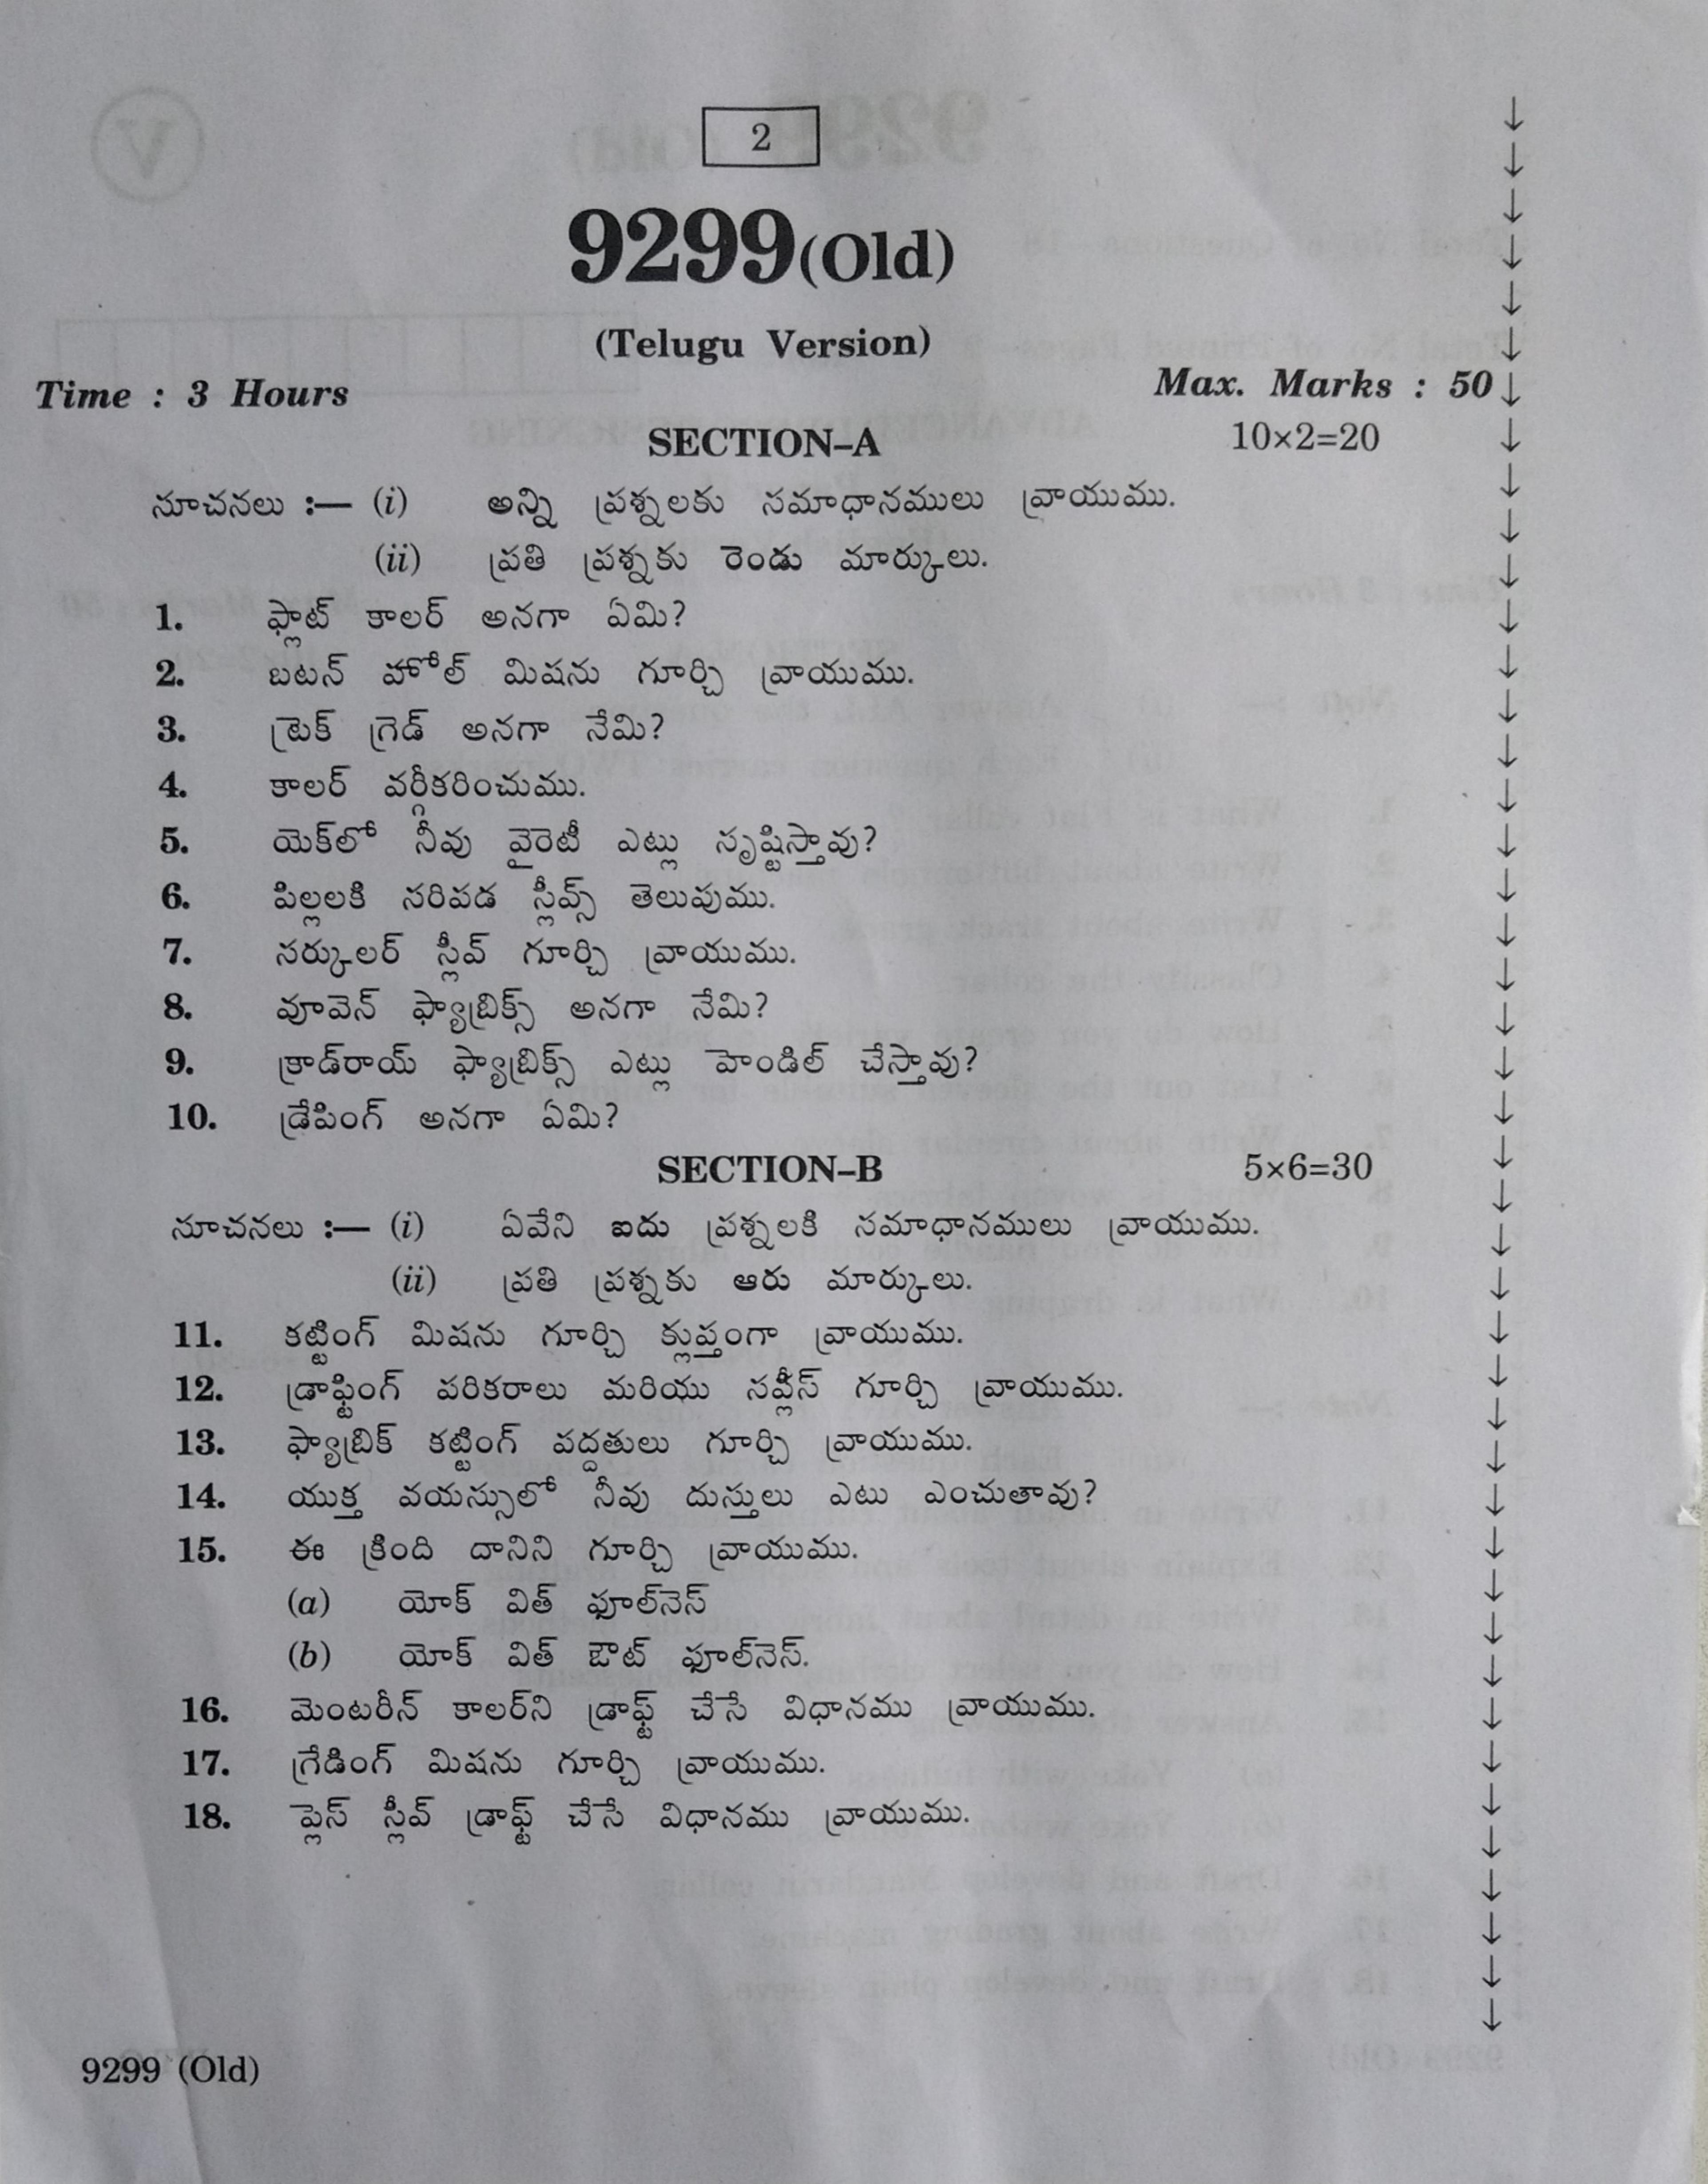 2
9299(Old)
(Telugu Version)
Time : 3 Hours Max. Marks : 50
SECTION–A 10×2=20
సూచనలు :— (i) అన్ని ప్రశ్నలకు సమాధానములు వ్రాయుము.
(ii) ప్రతి ప్రశ్నకు రెండు మార్కులు.
1. ఫ్లాట్ కాలర్ అనగా ఏమి?
2. బటన్ హోల్ మిషను గూర్చి వ్రాయుము.
3. ట్రెక్ గ్రెడ్ అనగా నేమి?
4. కాలర్ వర్గీకరించుము.
5. యెక్‌లో నీవు వైరెటీ ఎట్లు సృష్టిస్తావు?
6. పిల్లలకి సరిపడ స్లీవ్స్ తెలువుము.
7. సర్కులర్ స్లీవ్ గూర్చి వ్రాయుము.
8. వూవెన్ ఫ్యాబ్రిక్స్ అనగా నేమి?
9. క్రాడ్‌రాయ్ ఫ్యాబ్రిక్స్ ఎట్లు హెండిల్ చేస్తావు?
10. డ్రేపింగ్ అనగా ఏమి?
SECTION–B 5×6=30
సూచనలు :— (i) ఏవేని ఐదు ప్రశ్నలకి సమాధానములు వ్రాయుము.
(ii) ప్రతి ప్రశ్నకు ఆరు మార్కులు.
11. కట్టింగ్ మిషను గూర్చి క్లుప్తంగా వ్రాయుము.
12. డ్రాఫ్టింగ్ పరికరాలు మరియు సప్లీస్ గూర్చి వ్రాయుము.
13. ఫ్యాబ్రిక్ కట్టింగ్ పద్దతులు గూర్చి వ్రాయుము.
14. యుక్త వయస్సులో నీవు దుస్తులు ఎటు ఎంచుతావు?
15. ఈ క్రింది దానిని గూర్చి వ్రాయుము.
(a) యోక్ విత్ ఫూల్‌నెస్
(b) యోక్ విత్ ఔట్ ఫూల్‌నెస్.
16. మెంటరీన్ కాలర్‌ని డ్రాఫ్ట్ చేసే విధానము వ్రాయుము.
17. గ్రేడింగ్ మిషను గూర్చి వ్రాయుము.
18. ప్లైస్ స్లీవ్ డ్రాఫ్ట్ చేసే విధానము వ్రాయుము.
9299 (Old)